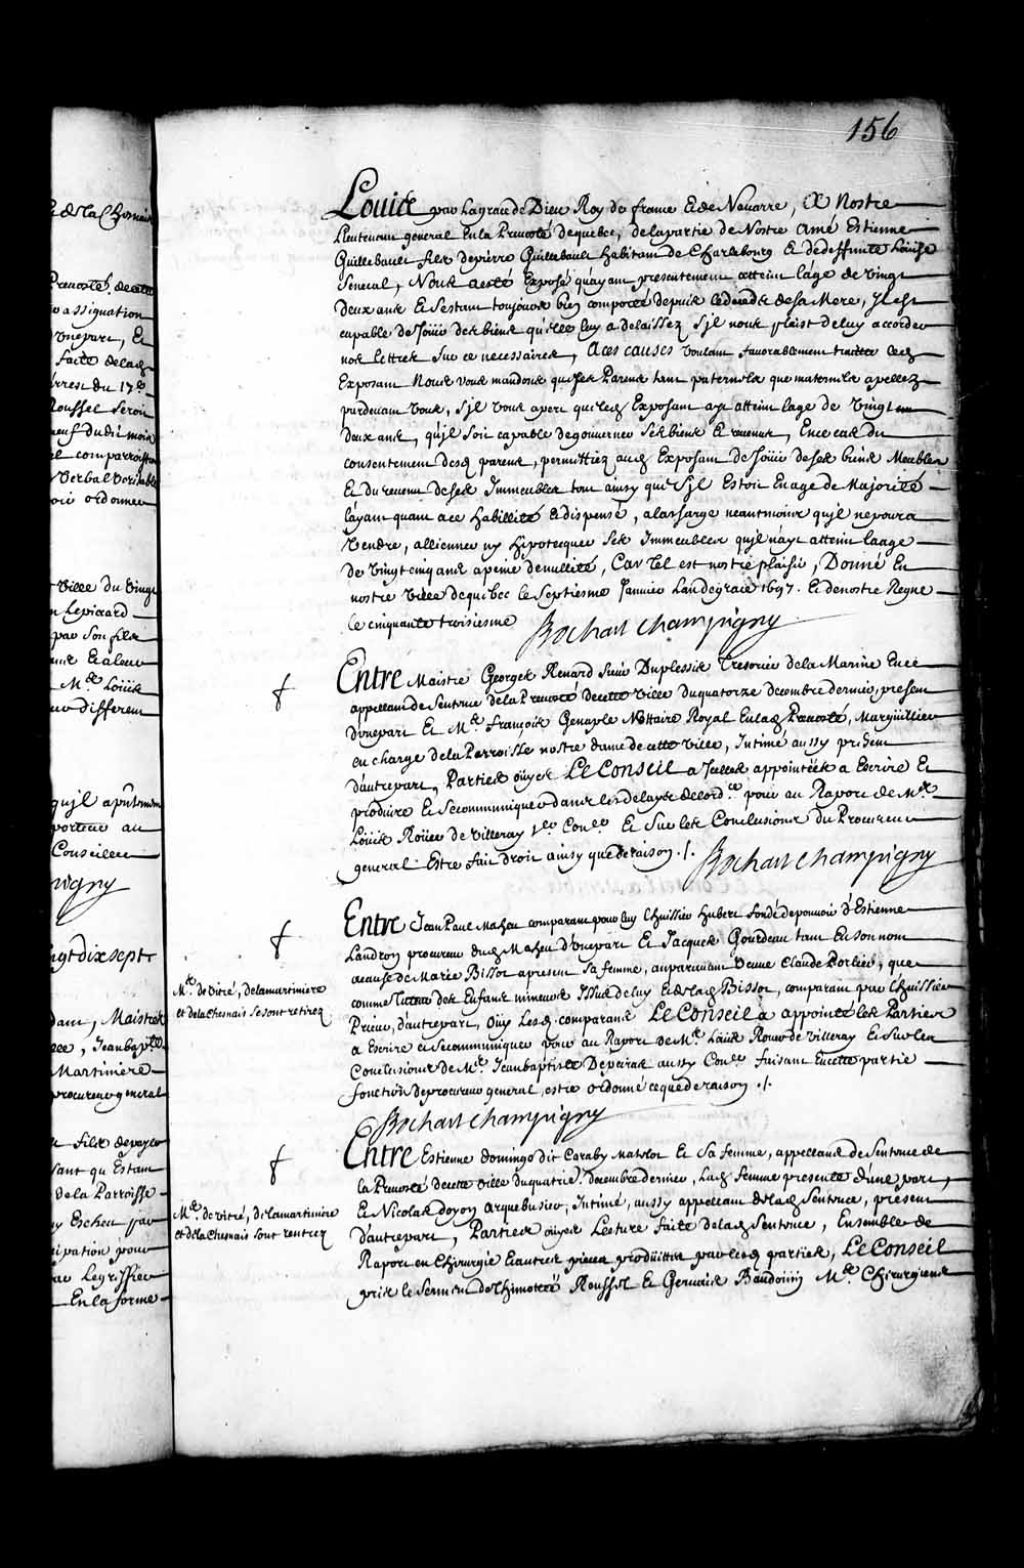 156
Louis par La grace de Dieu Roy de france Et de Navarre, A Nostre
Lieutenant general En la Prevosté de quebec, de la partie de Nostre Amé Estienne
Guillebault fils de pierre Guillebault habitant de Charlebourg Et de deffuncte Loüise
Senecal, Nous a esté Exposé qu'ayant presentement atteint l'age de vingt
deux ans Et s'estant toujours bien comporté depuis le deceds de sa Mere, Jl est
capable de Joüir des biens qu'elle luy a delaissez s'jl nous plaist de luy accorder
nos lettres sur ce necessaires, A ces causes voulant favorablement traitter led
Exposant Nous vous mandons que ses Parens tant paternels que maternels apellez
pardevant vous, s'jl vous apert que led Exposant ayt atteint l'age de vingt
deux ans, qu'jl soit capable de gouverner ses biens Et revenus, En ce cas du
consentement desd parens, permettiez aud Exposant de Joüir de ses biens Meubles
Et du revenu de ses Jmmeubles tout ainsy que s'jl Estoit En age de Majorité
l'ayant quant a ce habillité Et dispensé, a la charge neantmoins qu'jl ne poura
vendre, allienner ny hipotecquer ses Jmmeubles qu'jl n'ayt atteint l'aage
de vingt cinq ans a peine de nullité, Car tel est nostre plaisir, Donné En
nostre ville de quebec le Septiesme Janvier L'an de grace 1697. Et de nostre Regne
Le cinquante troisiesme Bochart Champigny
Entre Maistre Georges Renard Sieur Duplessis Tresorier de la Marine En ce
appellant de Sentence de la Prevosté de cette ville du quatorze decembre dernier, present
d'une part Et Me. françois Genaple Nottaire Royal En lad Prevosté, Marguillier
en charge de la Parroisse nostre dame de cette ville, Jntimé aussy present
d'autre part, Parties oüyes Le Conseil a Jcelles appointées a Escrire Et
produire Et se communiquer dans les delays de l'ordce pour au Raport de Me.
Loüis Roüer de Villeray 1er Coner Et sur les Conclusions du Procureur
general Estre fait droit ainsy que de raison ./. Bochart Champigny
Entre Jean Paul Maheu comparant pour luy l'huissier Hubert fondé de pouvoir d'Estienne
Landron procureur dud Maheu d'une part Et Jacques Gourdeau tant En son nom
a cause de Marie Bissot a present sa femme, auparavant veuve Claude Porlier, que
comme Tuteur des Enfans mineurs Jssus de luy Et de lad Bissot, comparant par l'huissier
Prieur, d'autre part, Oüy Lesd. comparans Le Conseil a appointé les Parties
a Escrire et se communiquer pour au Raport de Me. Loüis Roüer de Villeray Et sur les
Conclusions de Me. Jean baptiste Depeiras aussy Coner faisant En cette partie
fonction de procureur general, estre ordonné ce que de raison ./.
Bochart Champigny
Me. de vitré, de la martiniere
et de la Chesnais se sont retirez
Entre Estienne domingo dit Caraby Matelot Et sa femme, appellans de Sentence de
la Prevosté de cette ville du quatrie. decembre dernier, Lad femme presente d'une part,
Et Nicolas doyon arquebusier, Jntimé, aussy appellant de lad Sentence, present
d'autre part, Parties oüyes Lecture faite de lad Sentence, Ensemble de
Raport en Chirurgie Et autres pieces produittes par lesd parties, Le Conseil
pris le serment de Thimotée Roussel Et Gervais Baudoüin Me. Chirurgiens
Me. de vitré, de la martiniere
et de la Chesnais sont rentrez